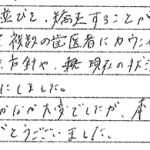 並びと、矯正することが
複数の歯医者にカウン
方針や、現在の状
にしました。
かなか大変でしたが、本
とうございました。